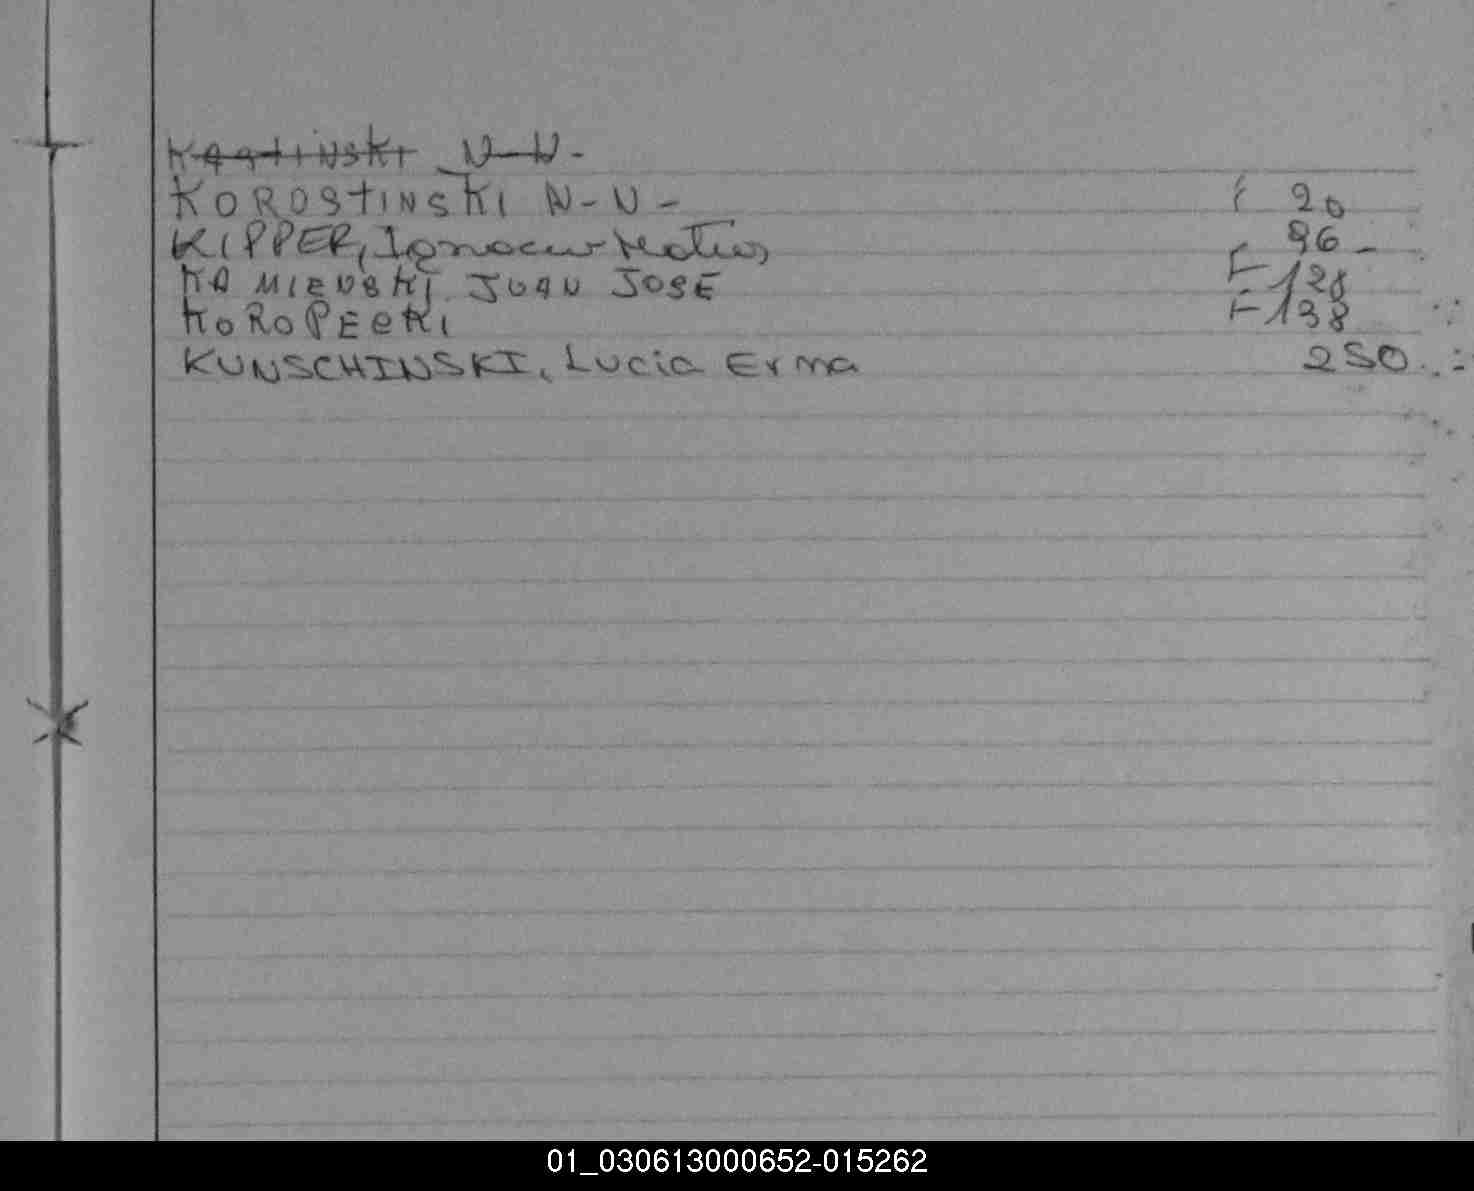 KOROSTINSKI N-N- F 20
KIPPER, Ignacio Matias 96-
KAMIENSKI JUAN JOSE F 128
KOROPECKI F 138
KUNSCHINSKI, Lucia Erma 250
01_030613000652-015262